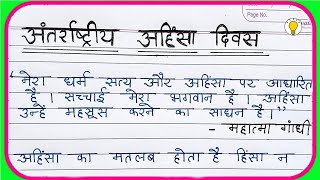 Page No.
अंतर्राष्ट्रीय अहिंसा दिवस
"मेरा धर्म सत्य और अहिंसा पर आधारित
है । सच्चाई मेरा भगवान है । अहिंसा
उन्हें महसूस करने का साधन है ।"
- महात्मा गाँधी
अहिंसा का मतलब होता है हिंसा न